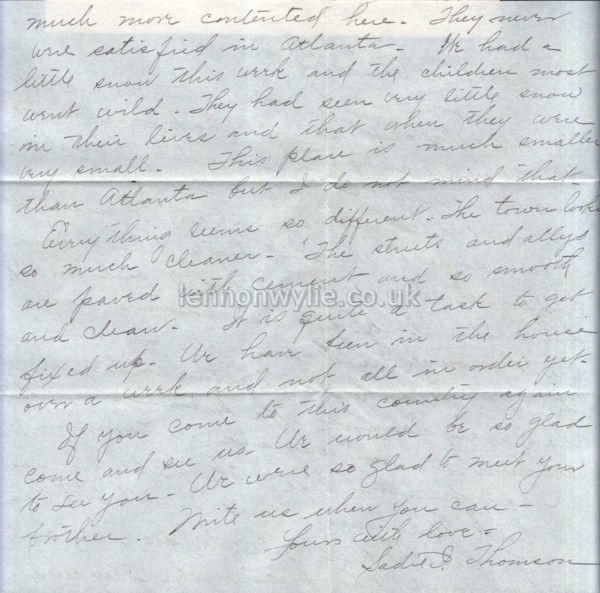 much more contented here. They never
were satisfied in Atlanta. We had a
little snow this week and the children most
went wild. They had seen very little snow
in their lives and that when they were
very small. This place is much smaller
than Atlanta but I do not mind that.
Everything seems so different. The town looks
so much cleaner - The streets and allys
are paved with cement and so smooth
lennonwylie.co.uk
and clean. It is quite a task to get
fixed up. We have been in the house
over a week and not all in order yet.
If you come to this country again
come and see us. We would be so glad
to see you - We were so glad to meet your
brother. Write us when you can -
Yours with love -
Sadie I. Thomson